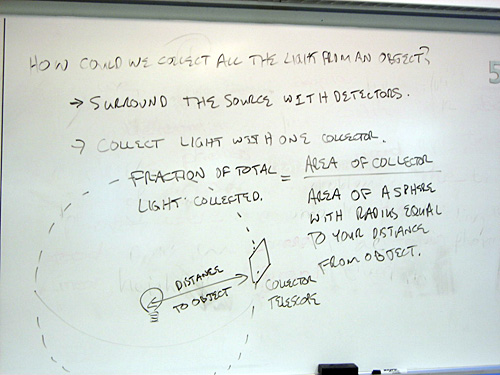 HOW COULD WE COLLECT ALL THE LIGHT FROM AN OBJECT?
→ SURROUND THE SOURCE WITH DETECTORS.
→ COLLECT LIGHT WITH ONE COLLECTOR.
FRACTION OF TOTAL
LIGHT COLLECTED.
=
AREA OF COLLECTOR
AREA OF A SPHERE
WITH RADIUS EQUAL
TO YOUR DISTANCE
FROM OBJECT.
DISTANCE
TO OBJECT
COLLECTOR
TELESCOPE
5